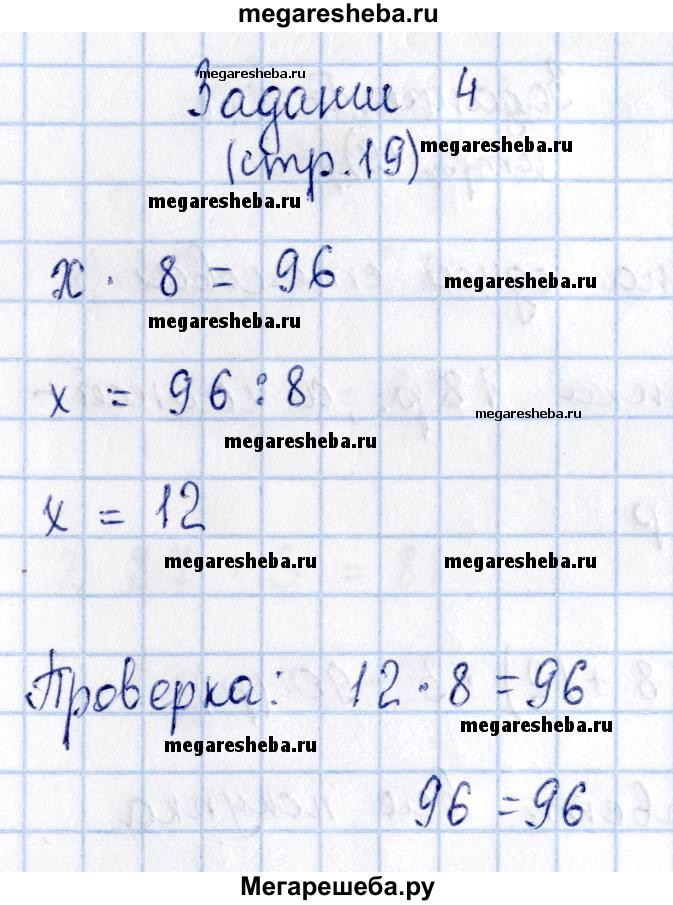 megaresheba.ru
Задание 4
megaresheba.ru
(стр. 19)
megaresheba.ru
megaresheba.ru
x · 8 = 96
megaresheba.ru
megaresheba.ru
x = 96 : 8
megaresheba.ru
megaresheba.ru
x = 12
megaresheba.ru
megaresheba.ru
Проверка: 12 · 8 = 96
megaresheba.ru
megaresheba.ru
96 = 96
Мегарешеба.ру